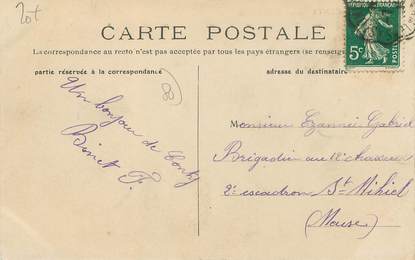 20+
CARTE POSTALE
La correspondance au recto n'est pas acceptée par tous les pays étrangers (se renseigner
partie réservée à la correspondance
adresse du destinataire
REPUBLIQUE FRANÇAISE
5c
POSTES
80
Un bonjour de Conty
Binet F.
Monsieur Gabriel
Brigadier au 12e chasseur
2e escadron St Mihiel
(Meuse)